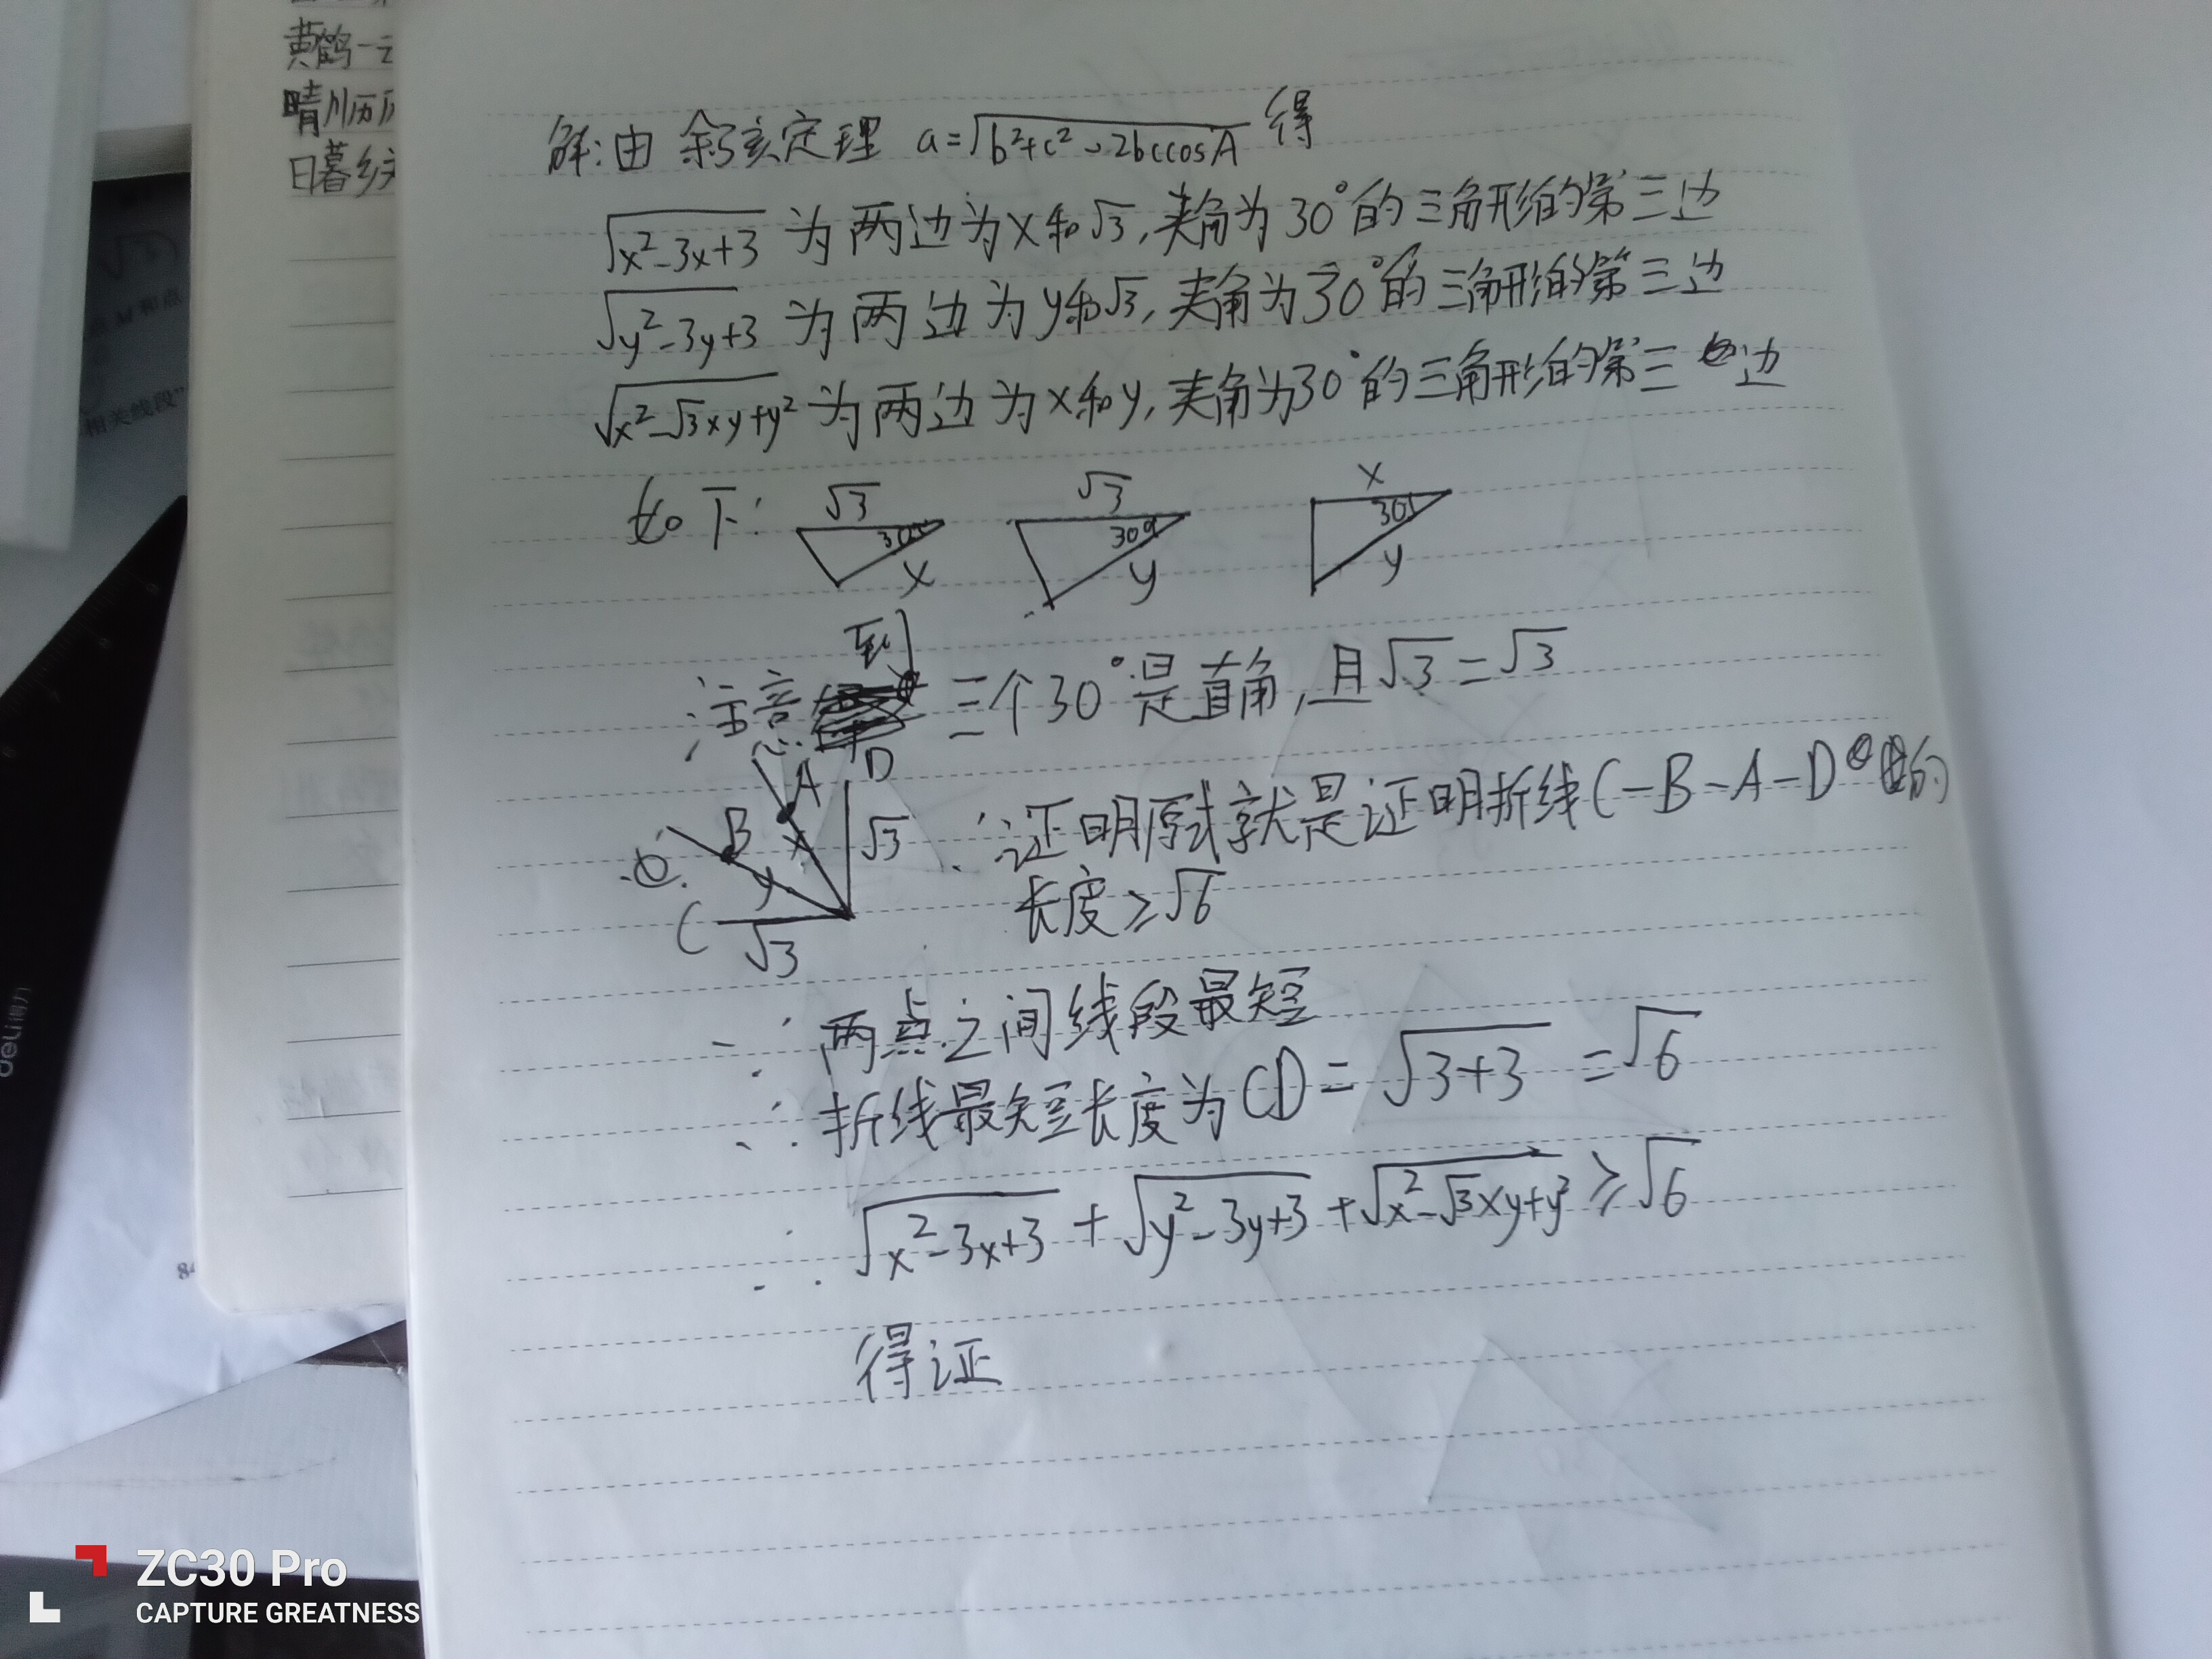 黄鹤一
晴川历历
日暮乡
解:由 余弦定理 a=√(b²+c²-2bccosA) 得
√(x²-3x+3) 为两边为x和√3,夹角为30°的三角形的第三边
√(y²-3y+3) 为两边为y和√3,夹角为30°的三角形的第三边
√(x²-√3xy+y²) 为两边为x和y,夹角为30°的三角形的第三边
如下:
√3 30° x
√3 30° y
x 30° y
注意到三个30°是直角,且√3=√3
A D B x √3 y C √3
∴证明原式就是证明折线C-B-A-D的
长度≥√6
∵两点之间线段最短
∴折线最短长度为CD=√(3+3)=√6
∴√(x²-3x+3)+√(y²-3y+3)+√(x²-√3xy+y²)≥√6
得证
M和点
相关线段”
deli得力
84
ZC30 Pro
CAPTURE GREATNESS